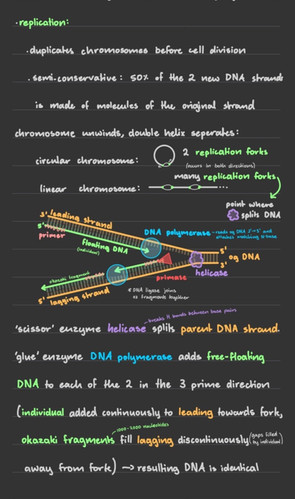 • replication:
• duplicates chromosomes before cell division
• semi-conservative: 50% of the 2 new DNA strands
is made of molecules of the original strand
chromosome unwinds, double helix seperates:
circular chromosome: 2 replication forks
(occurs in both directions)
linear chromosome: many replication forks
point where
splits DNA
3' leading strand
5'
primer
floating DNA
(individual)
DNA polymerase - reads og DNA 3'-5' and
og DNA
helicase
primase
okazaki fragment
3'
5'
lagging strand
* DNA ligase joins
okazaki fragments together
↓ breaks H bonds between base pairs
'scissor' enzyme helicase splits parent DNA strand.
'glue' enzyme DNA polymerase adds free-floating
DNA to each of the 2 in the 3 prime direction
(individual added continuously to leading towards fork,
1000-2000 nucleotides
okazaki fragments fill lagging discontinuously (gaps filled by individual)
away from fork) → resulting DNA is identical